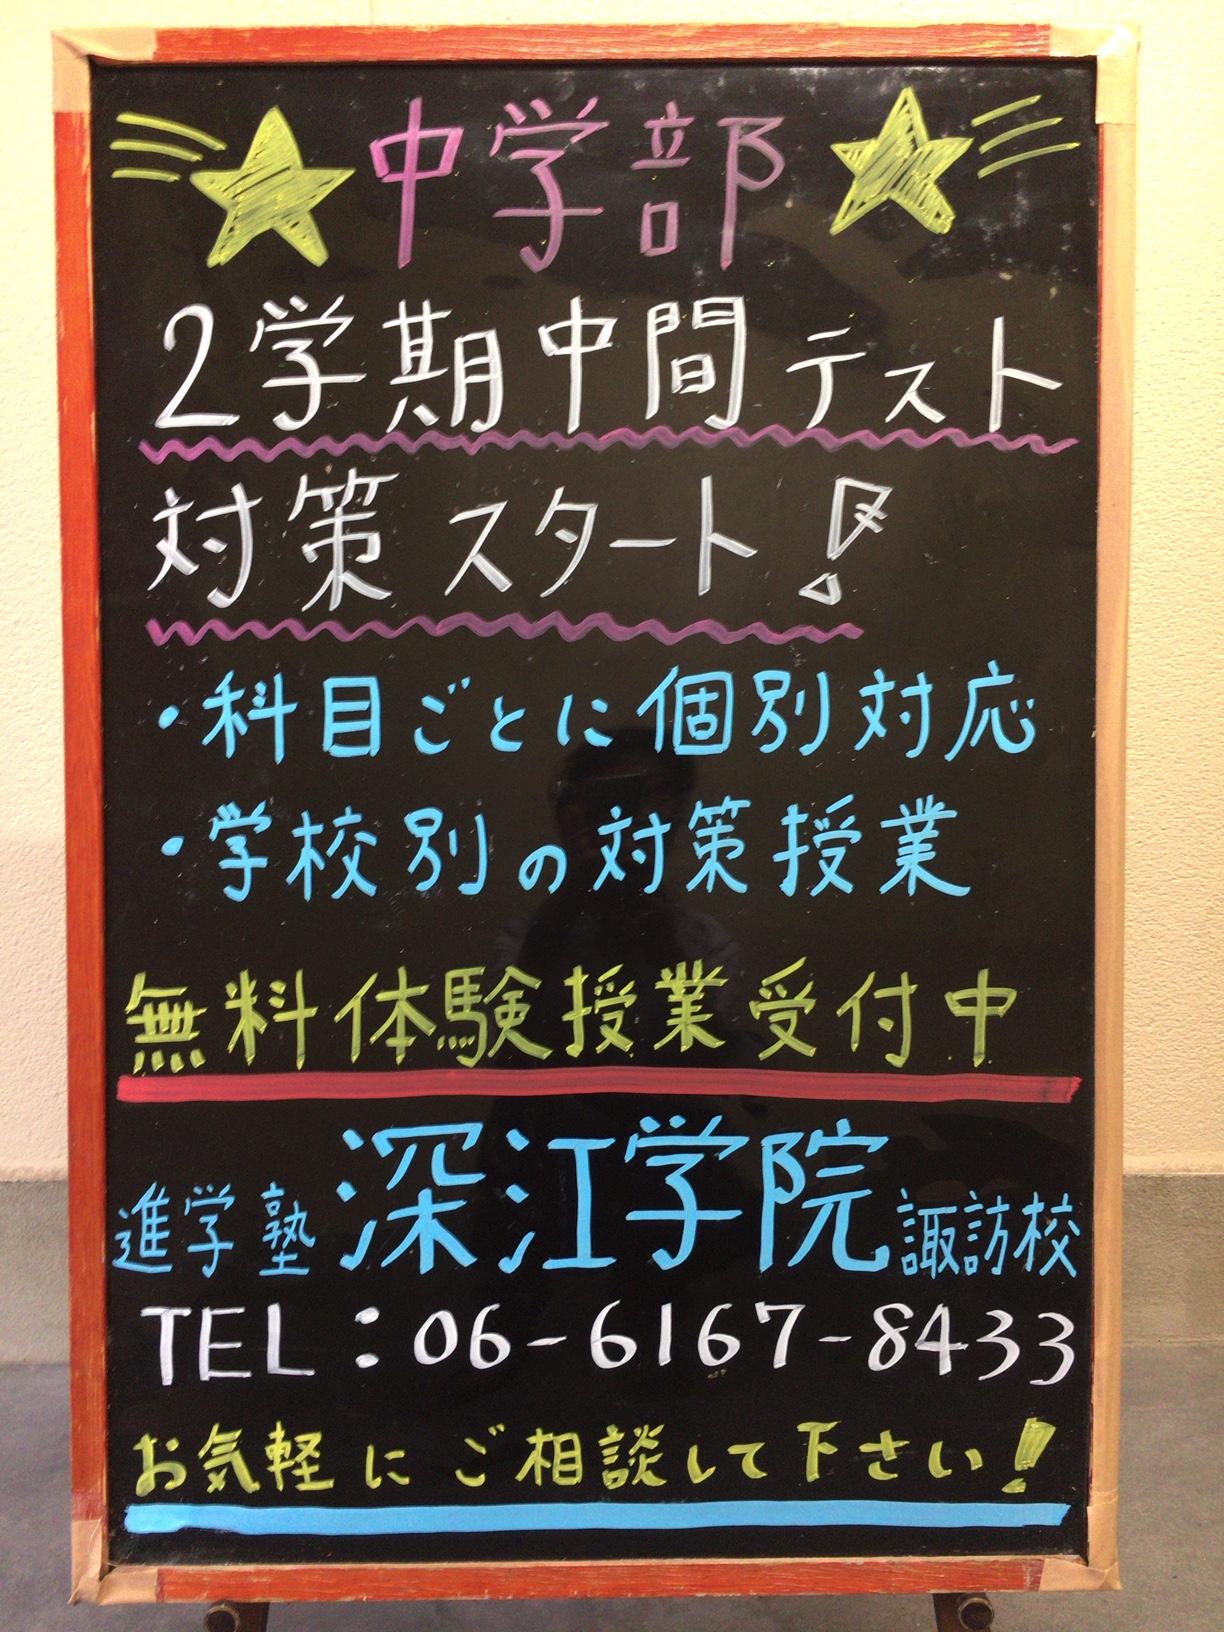 中学部
2学期中間テスト
対策スタート!
・科目ごとに個別対応
・学校別の対策授業
無料体験授業受付中
進学塾 深江学院 諏訪校
TEL:06-6167-8433
お気軽にご相談して下さい!